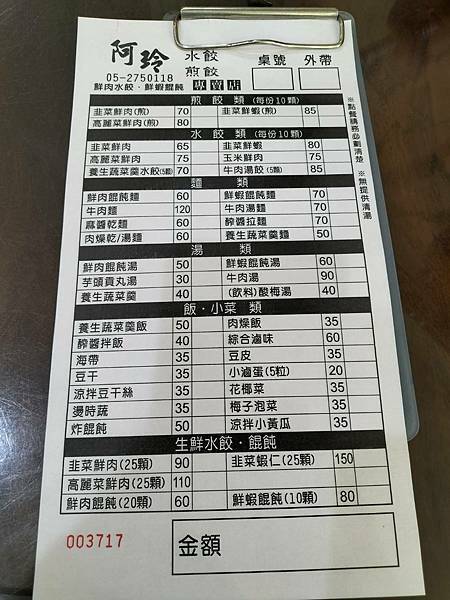 阿玲 水餃 煎餃 專賣店
05-2750118
鮮肉水餃・鮮蝦餛飩
桌號 外帶
※點餐請務必劃清楚 ※無提供清湯
煎 餃 類 (每份10顆)
韭菜鮮肉(煎) 70 韭菜鮮蝦(煎) 85
高麗菜鮮肉(煎) 80
水 餃 類 (每份10顆)
韭菜鮮肉 65 韭菜鮮蝦 80
高麗菜鮮肉 75 玉米鮮肉 75
養生蔬菜羹水餃(5顆) 70 牛肉湯餃(5顆) 85
麵 類
鮮肉餛飩麵 60 鮮蝦餛飩麵 70
牛肉麵 120 牛肉湯麵 70
麻醬乾麵 60 醡醬拉麵 70
肉燥乾/湯麵 60 養生蔬菜羹麵 50
湯 類
鮮肉餛飩湯 50 鮮蝦餛飩湯 60
芋頭貢丸湯 30 牛肉湯 90
養生蔬菜羹 40 (飲料)酸梅湯 40
飯・小菜 類
養生蔬菜羹飯 50 肉燥飯 35
醡醬拌飯 40 綜合滷味 60
海帶 35 豆皮 35
豆干 35 小滷蛋(5粒) 20
涼拌豆干絲 35 花椰菜 35
燙時蔬 35 梅子泡菜 35
炸餛飩 50 涼拌小黃瓜 35
生鮮水餃・餛飩
韭菜鮮肉(25顆) 90 韭菜蝦仁(25顆) 150
高麗菜鮮肉(25顆) 110
鮮肉餛飩(20顆) 60 鮮蝦餛飩(10顆) 80
003717 金額